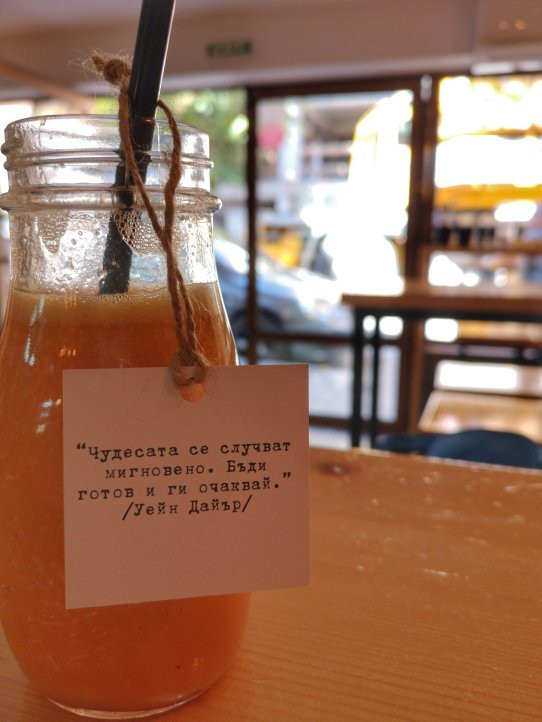 “Чудесата се случват
мигновено. Бъди
готов и ги очаквай.”
/Уейн Дайър/